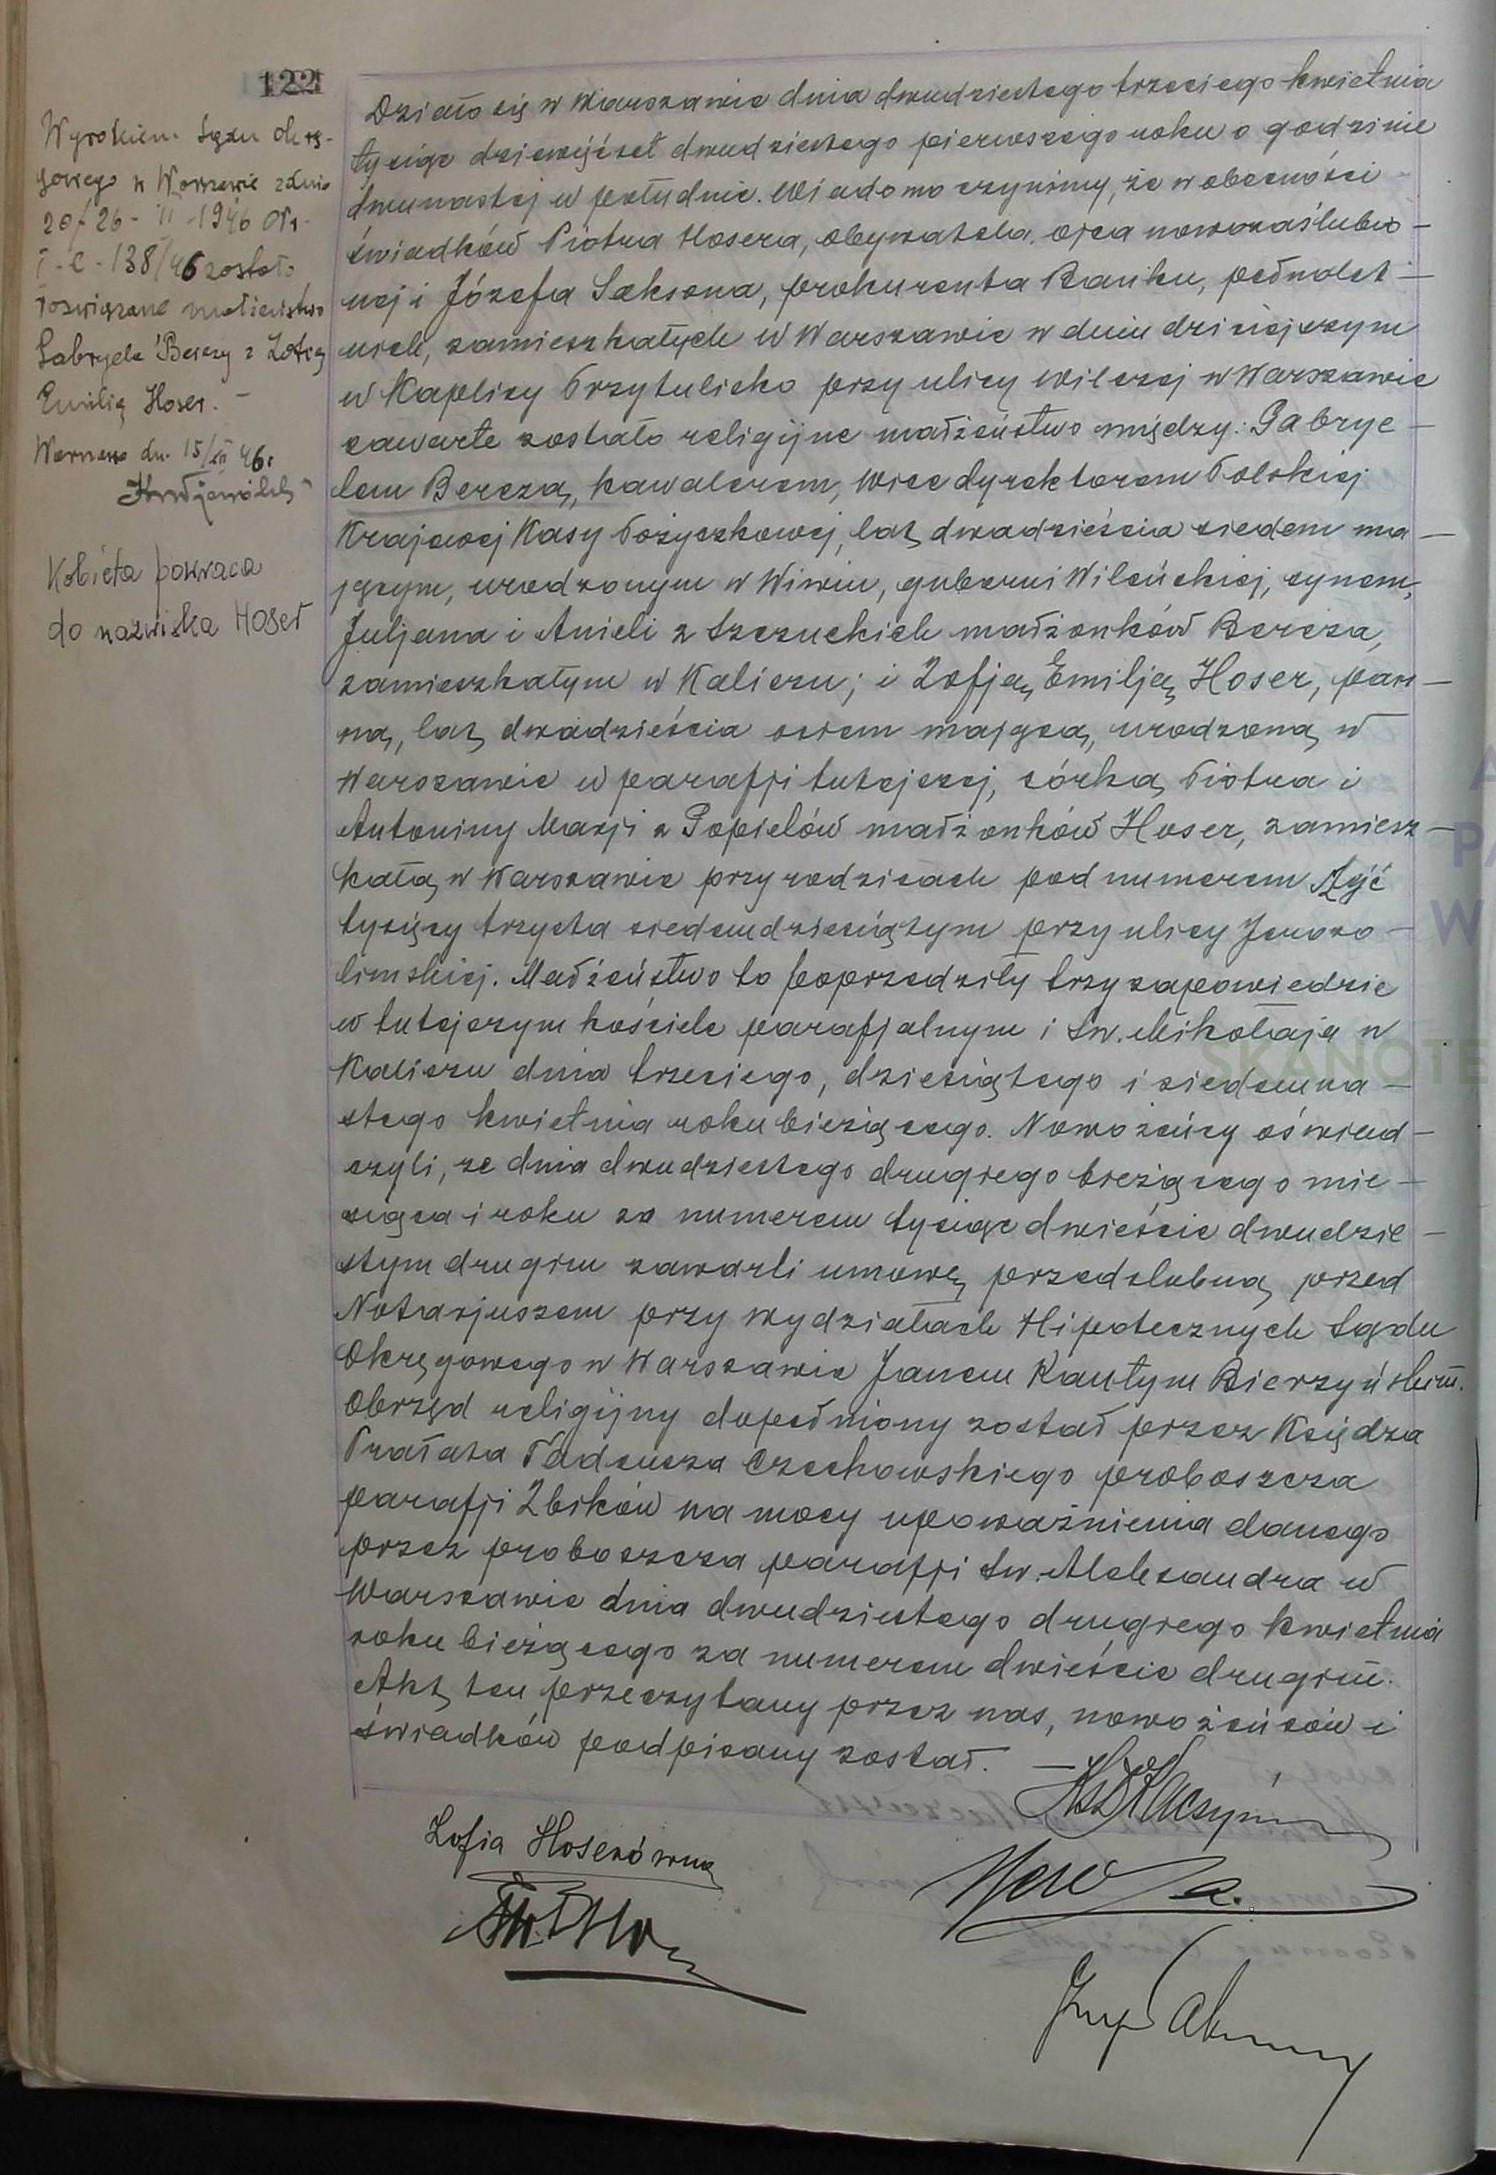 122
Wyrokiem Sądu Okrę-
gowego w Warszawie z dnia
20/26 - II - 1946 Nr.
I - C - 138/46 zostało
rozwiązane małżeństwo
Gabryela Berezy z Zofią
Emilią Hoser. -
Warszawa dn. 15/XII 46.
Kobieta powraca
do nazwiska Hoser
Działo się w Warszawie dnia dwudziestego trzeciego kwietnia
tysiąc dziewięćset dwudziestego pierwszego roku o godzinie
dwunastej w południe. Wiadomo czynimy, że w obecności
świadków Piotra Hosera, obywatela, ojca nowozaślubio-
nej i Józefa Saksona, prokurenta Banku, pełnolet-
nich, zamieszkałych w Warszawie w dniu dzisiejszym
w Kaplicy Przytulisko przy ulicy Wilczej w Warszawie
zawarte zostało religijne małżeństwo między: Gabrye-
lem Berezą, kawalerem, Wice dyrektorem Polskiej
Krajowej Kasy Pożyczkowej, lat dwadzieścia siedem ma-
jącym, urodzonym w Wiwiu, guberni Wileńskiej, synem,
Juljana i Anieli z Szczuckich małżonków Bereza,
zamieszkałym w Kaliszu; i Zofją Emilją Hoser, pan-
ną, lat dwadzieścia osiem mającą, urodzoną w
Warszawie w parafji tutejszej, córką Piotra i
Antoniny Marji z Popielów małżonków Hoser, zamiesz-
kałą w Warszawie przy rodzicach pod numerem
tysięcy trzysta siedemdziesiątym przy ulicy Jerozo-
limskiej. Małżeństwo to poprzedziły trzy zapowiedzie
w tutejszym kościele parafjalnym i Św. Mikołaja w
Kaliszu dnia trzeciego, dziesiątego i siedemna-
stego kwietnia roku bieżącego. Nowożeńcy oświad-
czyli, że dnia dwudziestego drugiego bieżącego mie-
siąca i roku za numerem tysiąc dwieście dwudzie-
stym drugim zawarli umowę przedślubną przed
Notarjuszem przy wydziałach Hipotecznych Sądu
Okręgowego w Warszawie Janem Kantym Bierzyńskim.
Obrzęd religijny dopełniony został przez Księdza
Prałata Tadeusza Czechowskiego proboszcza
parafji Zbików na mocy upoważnienia danego
przez proboszcza parafji Św. Aleksandra w
Warszawie dnia dwudziestego drugiego kwietnia
roku bieżącego za numerem dwieście drugim.
Akt ten przeczytany przez nas, nowożeńców i
świadków podpisany został. -
Zofia Hoserówna
SKANOTE